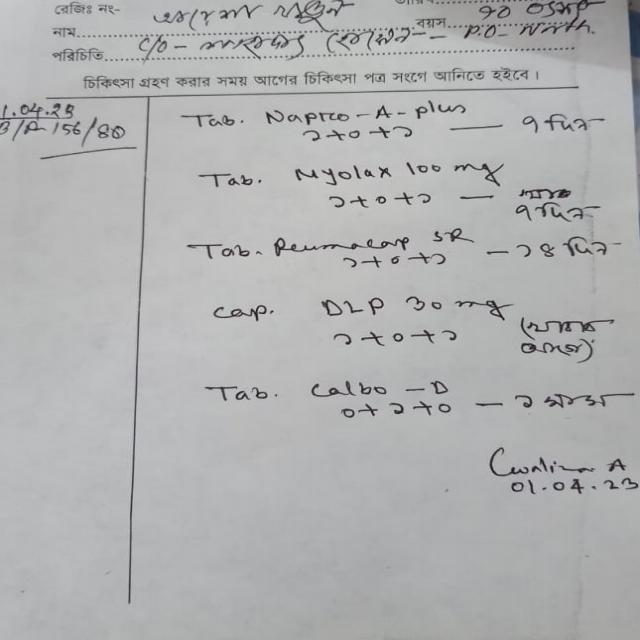 রেজিঃ নং-
নাম বয়স ৭০
পরিচিতি C/O -
চিকিৎসা গ্রহণ করার সময় আগের চিকিৎসা পত্র সংগে আনিতে হইবে।
1.04.23
B/P 156/80
Tab. Napro-A-plus
১+০+১ — ৭ দিন
Tab. Myolax 100 mg
১+০+১ —
৭ দিন
Tab. Reumacap SR
১+০+১ — ১৪ দিন
Cap. DLP 30 mg
১+০+১ (খাবার
আগে)
Tab. Calbo-D
০+১+০ — ১ মাস
01.04.23